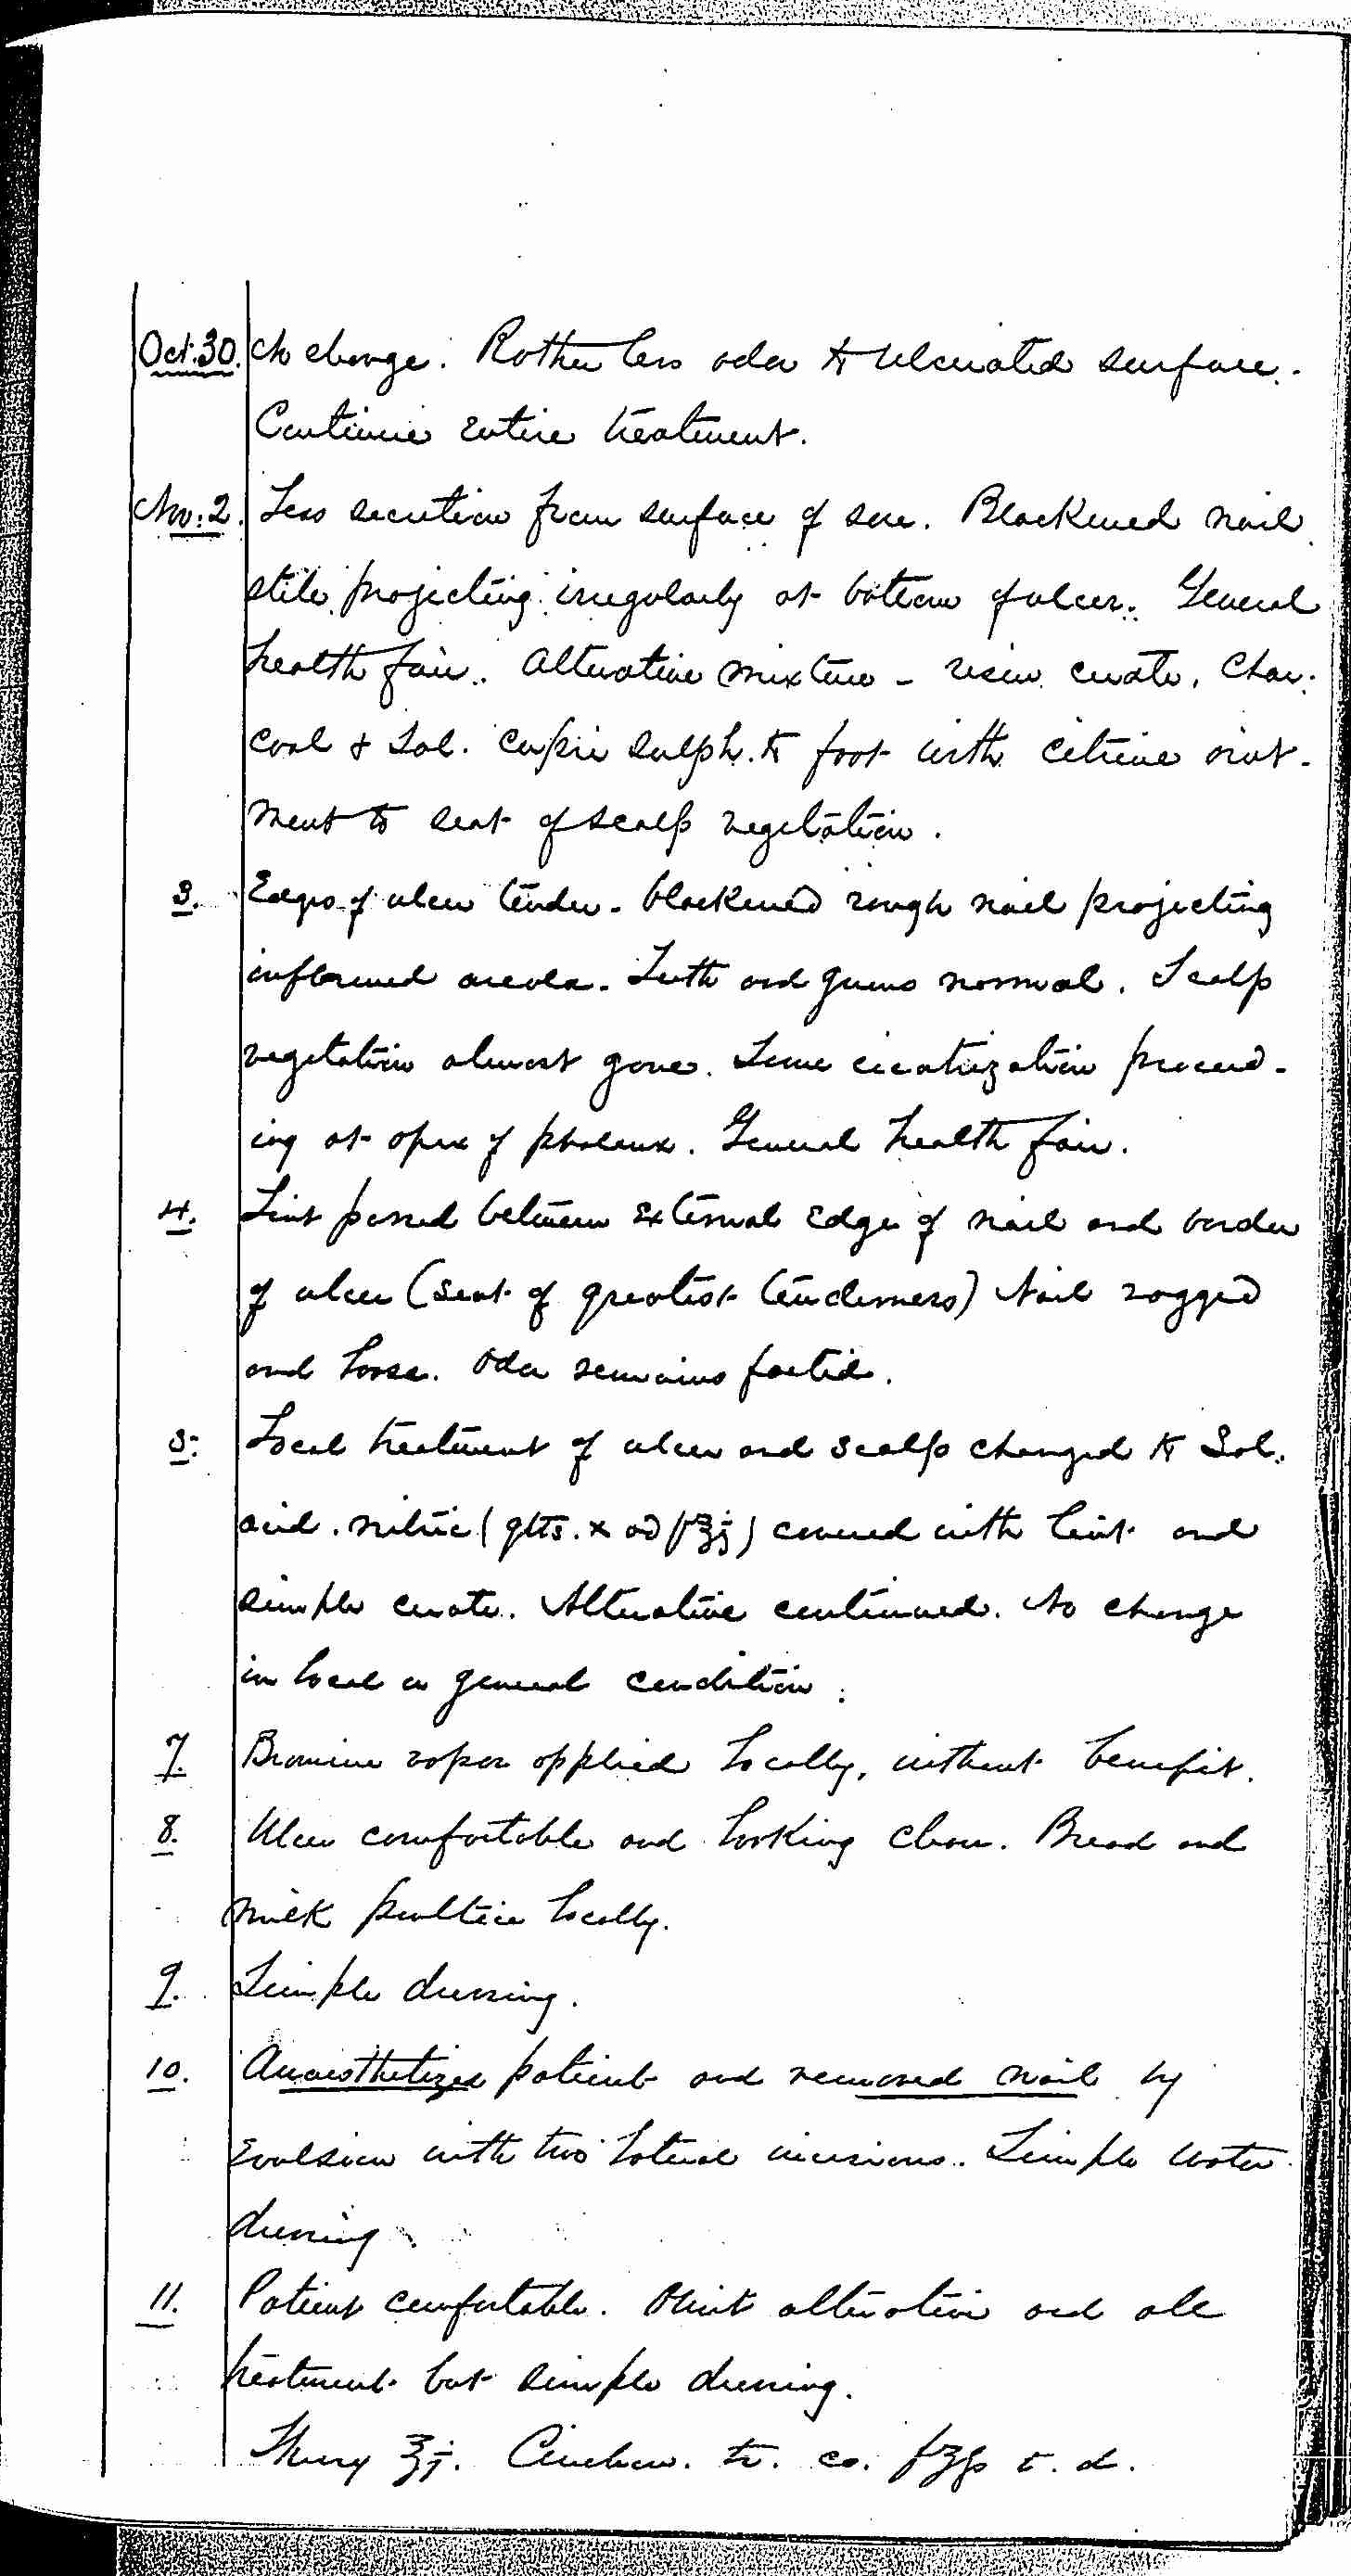 Oct. 30. No change. Rather less odor to ulcerated surface.
Continue entire treatment.
Nov. 2. Less secretion from surface of sore. Blackened nail
still projecting irregularly at bottom of ulcer. General
health fair. Alterative mixture - resin cerate, Char-
coal & Sol. cupri sulph. to foot with citrine oint-
ment to seat of scalp vegetation.
3. Edges of ulcer tender. blackened rough nail projecting
inflamed areola. Teeth and gums normal. Scalp
vegetation almost gone. Some cicatrization proceed-
ing at apex of phalanx. General health fair.
4. Lint passed between external edge of nail and border
of ulcer (seat of greatest tenderness) Nail ragged
and loose. Odor remains foetid.
5. Local treatment of ulcer and scalp changed to Sol.
acid. nitric (gtts. x ad f℥j) covered with lint and
simple cerate. Alterative continued. No change
in local or general condition.
7. Bromine vapor applied locally, without benefit.
8. Ulcer comfortable and looking clean. Bread and
milk poultice locally.
9. Simple dressing.
10. Anaesthetized patient and removed nail by
evulsion with two lateral incisions. Simple water
dressing.
11. Patient comfortable. Omit alterative and all
treatment but simple dressing.
℥j. Cinchon. tr. co. t. d.